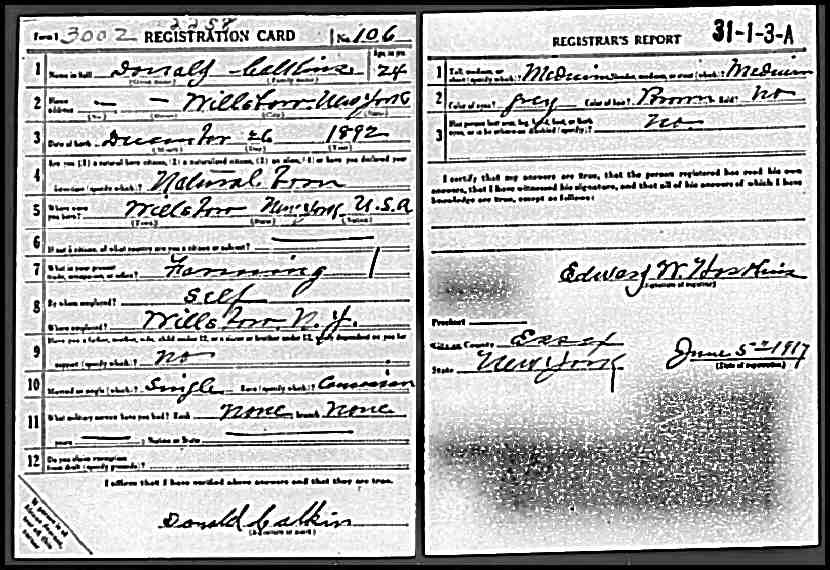 2258
Form 1 3002 REGISTRATION CARD No. 106
Age, in yrs.
1 Name in full Donald Calkins 24
(Given name) (Family name)
2 Home address — — Willsboro New York
(No.) (Street) (City) (State)
3 Date of birth December 26 1892
(Month) (Day) (Year)
Are you (1) a natural born citizen, (2) a naturalized citizen, (3) an alien, (4) or have you declared your
4 intention (specify which)? Natural born
5 Where were you born? Willsboro New York U.S.A
(Town) (State) (Nation)
6 If not a citizen, of what country are you a citizen or subject?
7 What is your present trade, occupation, or office? Farming
8 By whom employed? Self
Where employed? Willsboro, N.Y.
Have you a father, mother, wife, child under 12, or a sister or brother under 12, solely dependent on you for
9 support (specify which)? No
10 Married or single (which)? Single Race (specify which)? Caucasian
11 What military service have you had? Rank None branch None
years Nation or State
12 Do you claim exemption from draft (specify grounds)?
I affirm that I have verified above answers and that they are true.
Donald Calkin
(Signature or mark)
REGISTRAR'S REPORT 31-1-3-A
1 Tall, medium, or short (specify which)? Medium Slender, medium, or stout (which)? Medium
2 Color of eyes? Grey Color of hair? Brown Bald? No
3 Has person lost arm, leg, hand, foot, or both eyes, or is he otherwise disabled (specify)? No
I certify that my answers are true, that the person registered has read his own
answers, that I have witnessed his signature, and that all of his answers of which I have
knowledge are true, except as follows:
Edward W. Hoskins
(Signature of registrar)
Precinct
City or County Essex
State New York June 5th 1917
(Date of registration)